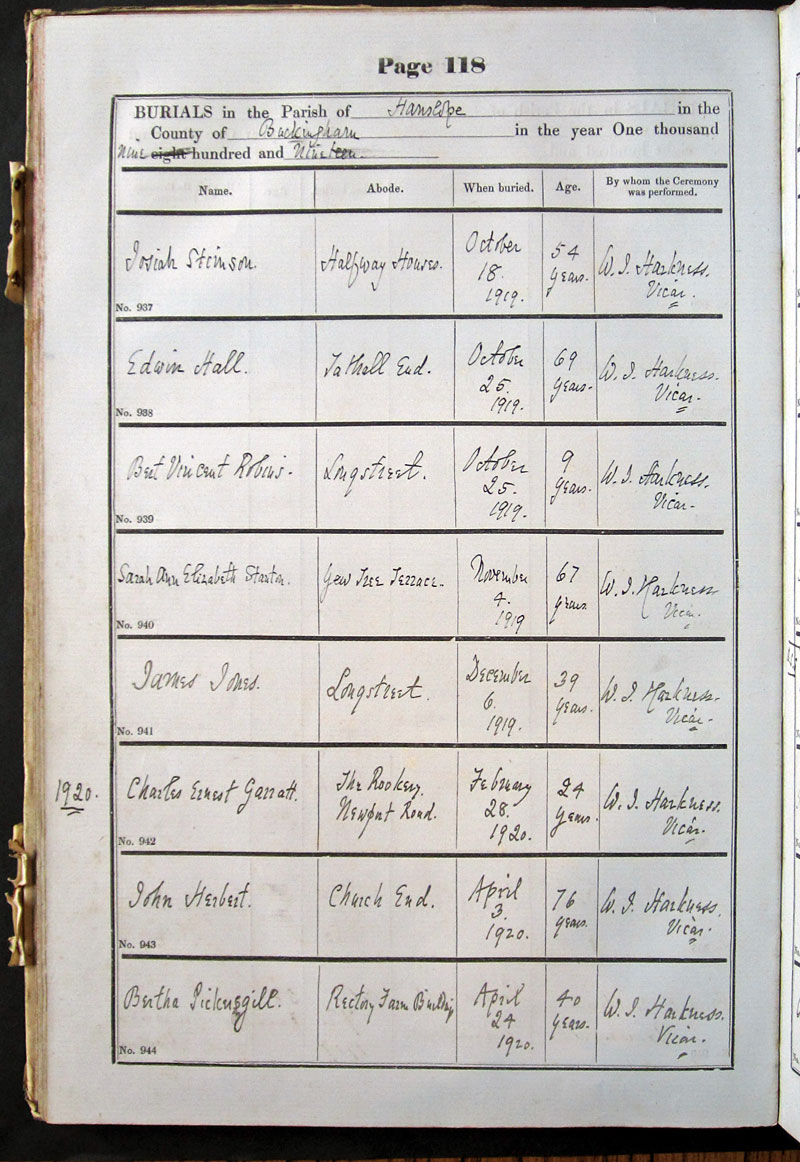 Page 118
BURIALS in the Parish of Hanslope in the
County of Buckingham in the year One thousand
Nine eight hundred and Nineteen.
Name. Abode. When buried. Age. By whom the Ceremony was performed.
Josiah Stimson. Halfway Houses. October 18. 1919. 54 years. W. J. Harkness. Vicar.
No. 937
Edwin Hall. Tathall End. October 25. 1919. 69 years. W. J. Harkness. Vicar.
No. 938
Bert Vincent Robins. Longstreet. October 25. 1919. 9 years. W. J. Harkness. Vicar.
No. 939
Sarah Ann Elizabeth Stanton. Yew Tree Terrace. November 4. 1919 67 years W. J. Harkness Vicar.
No. 940
James Jones. Longstreet. December 6. 1919. 39 years. W. J. Harkness. Vicar.
No. 941
1920. Charles Ernest Garratt. The Rookery. Newport Road. February 28. 1920. 24 years. W. J. Harkness. Vicar.
No. 942
John Herbert. Church End. April 3. 1920. 76 years. W. J. Harkness. Vicar.
No. 943
Bertha Pickersgill. Rectory Farm Building April 24 1920. 40 years. W. J. Harkness. Vicar.
No. 944